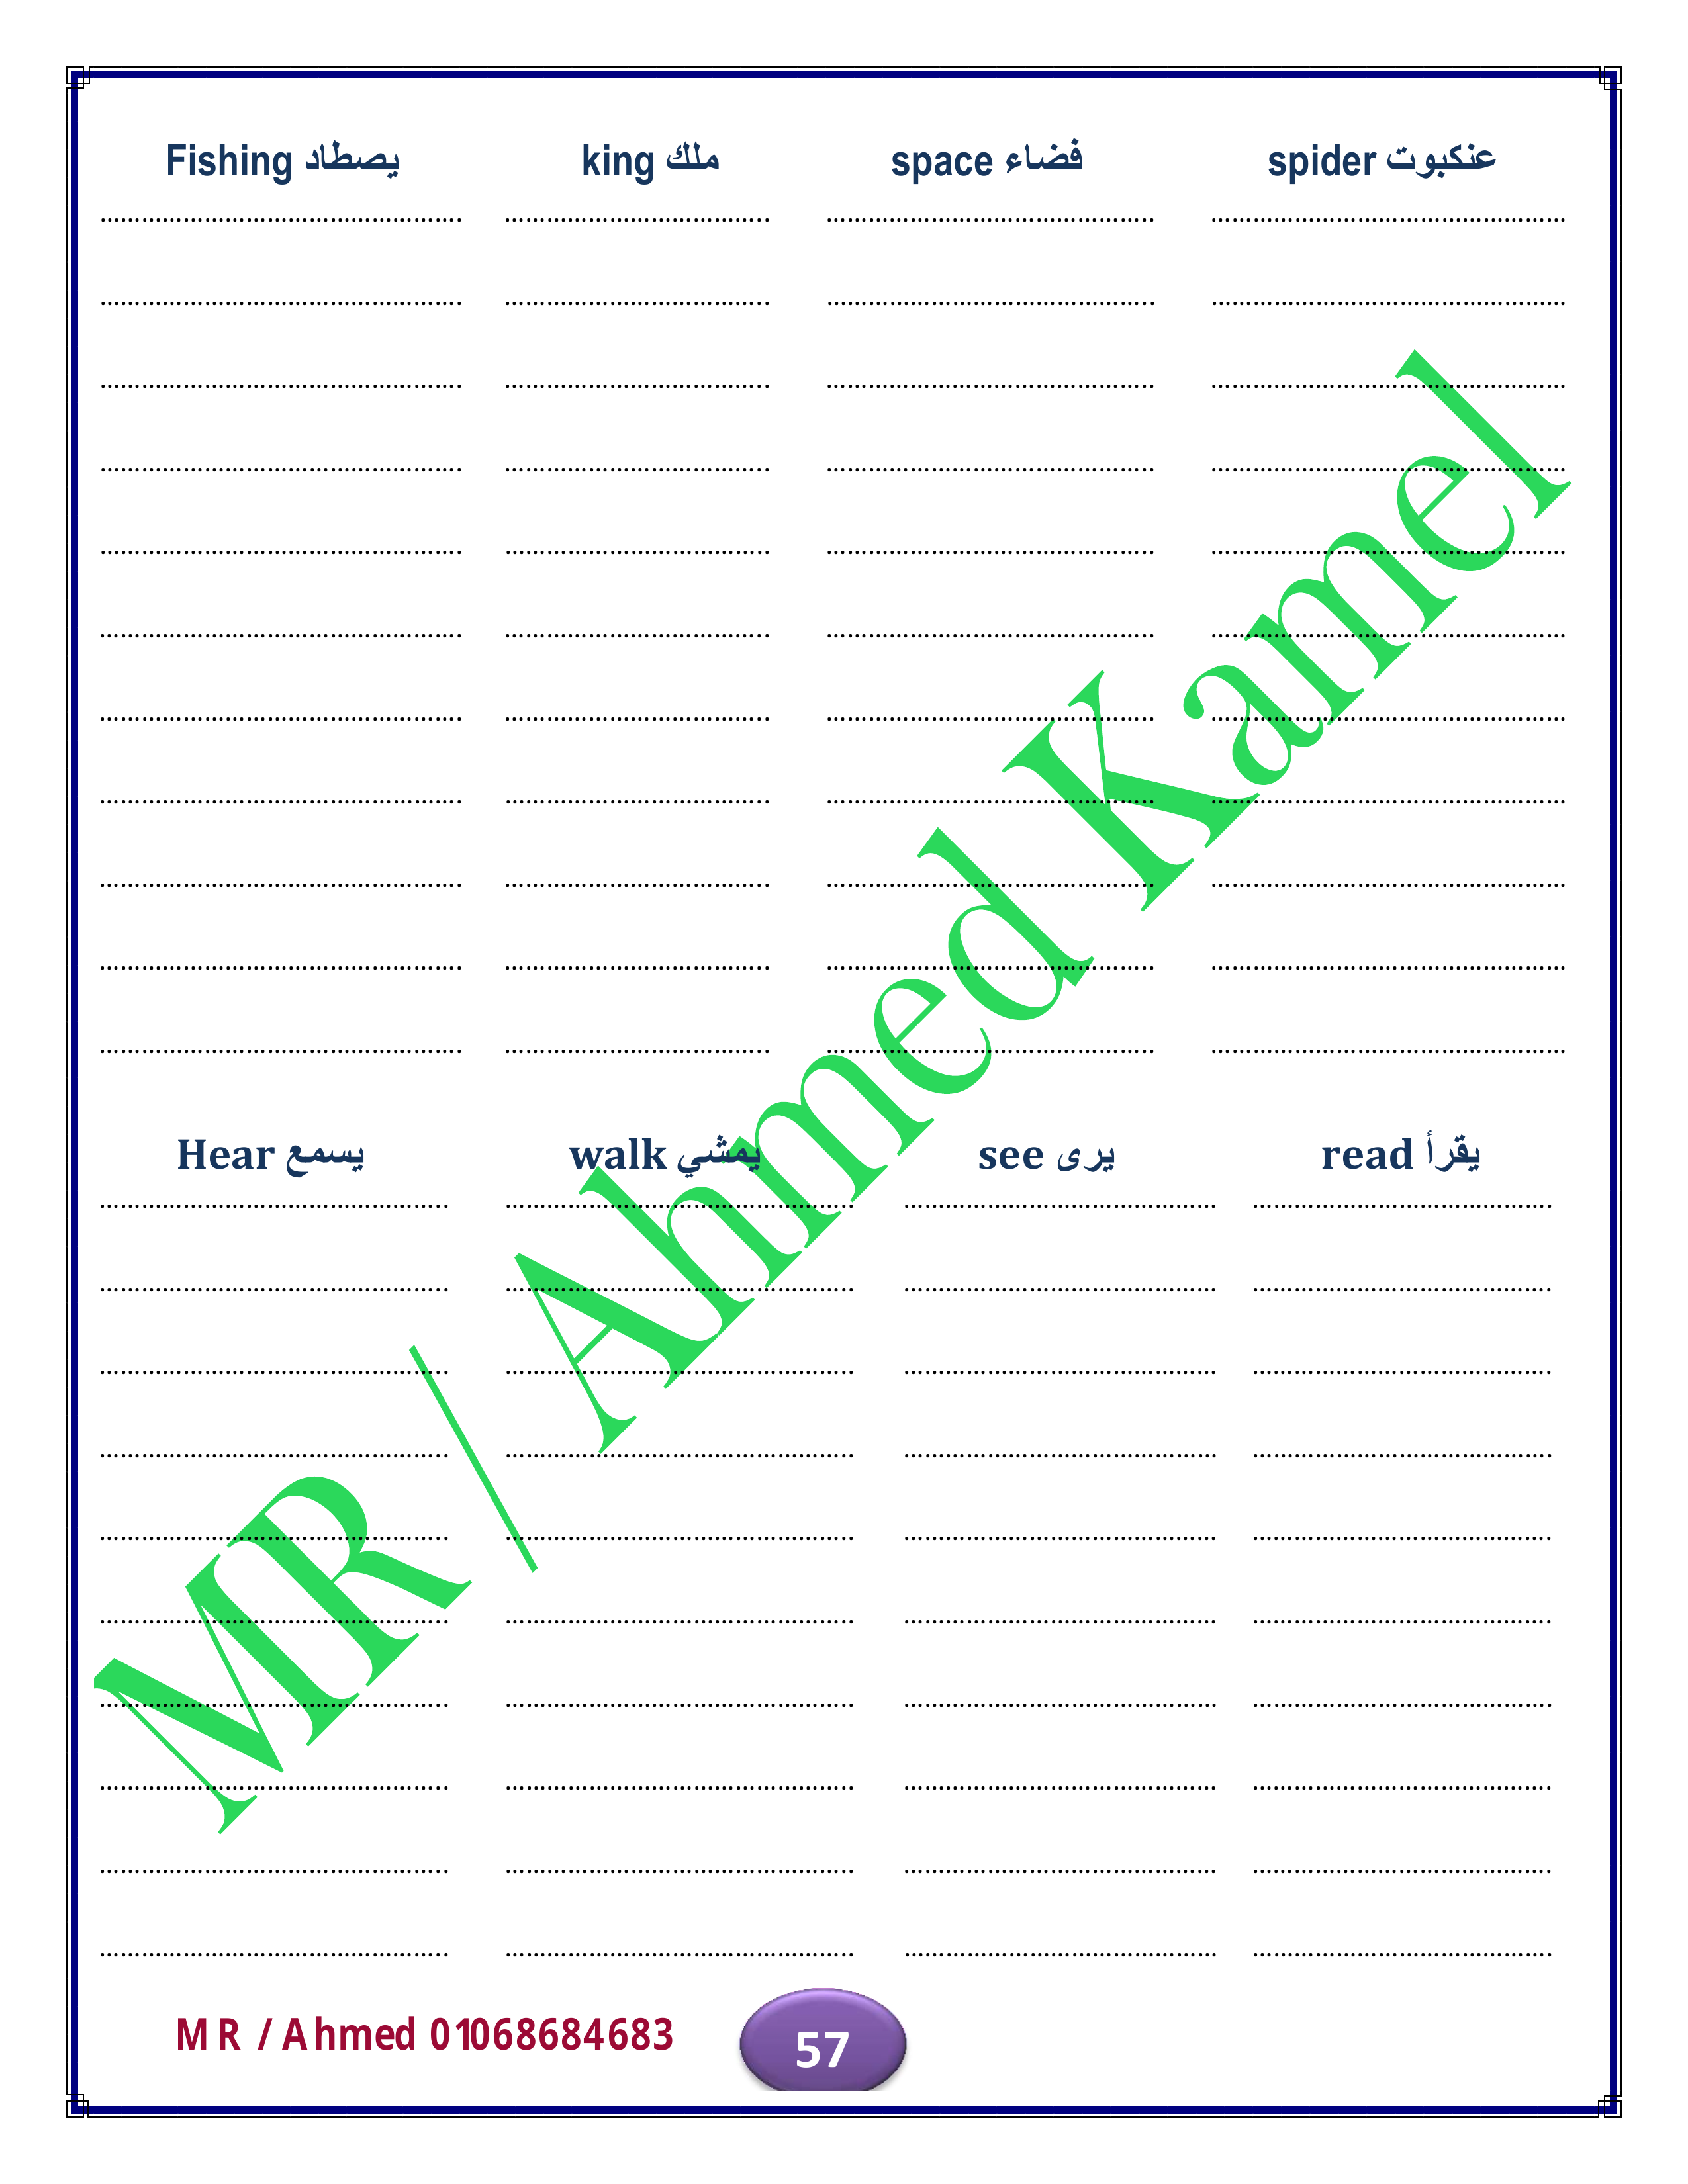 Fishing يصطاد king ملك space فضاء spider عنكبوت
Hear يسمع walk يمشي see يرى read يقرأ
MR / Ahmed Kamel
MR / Ahmed 01068684683
57